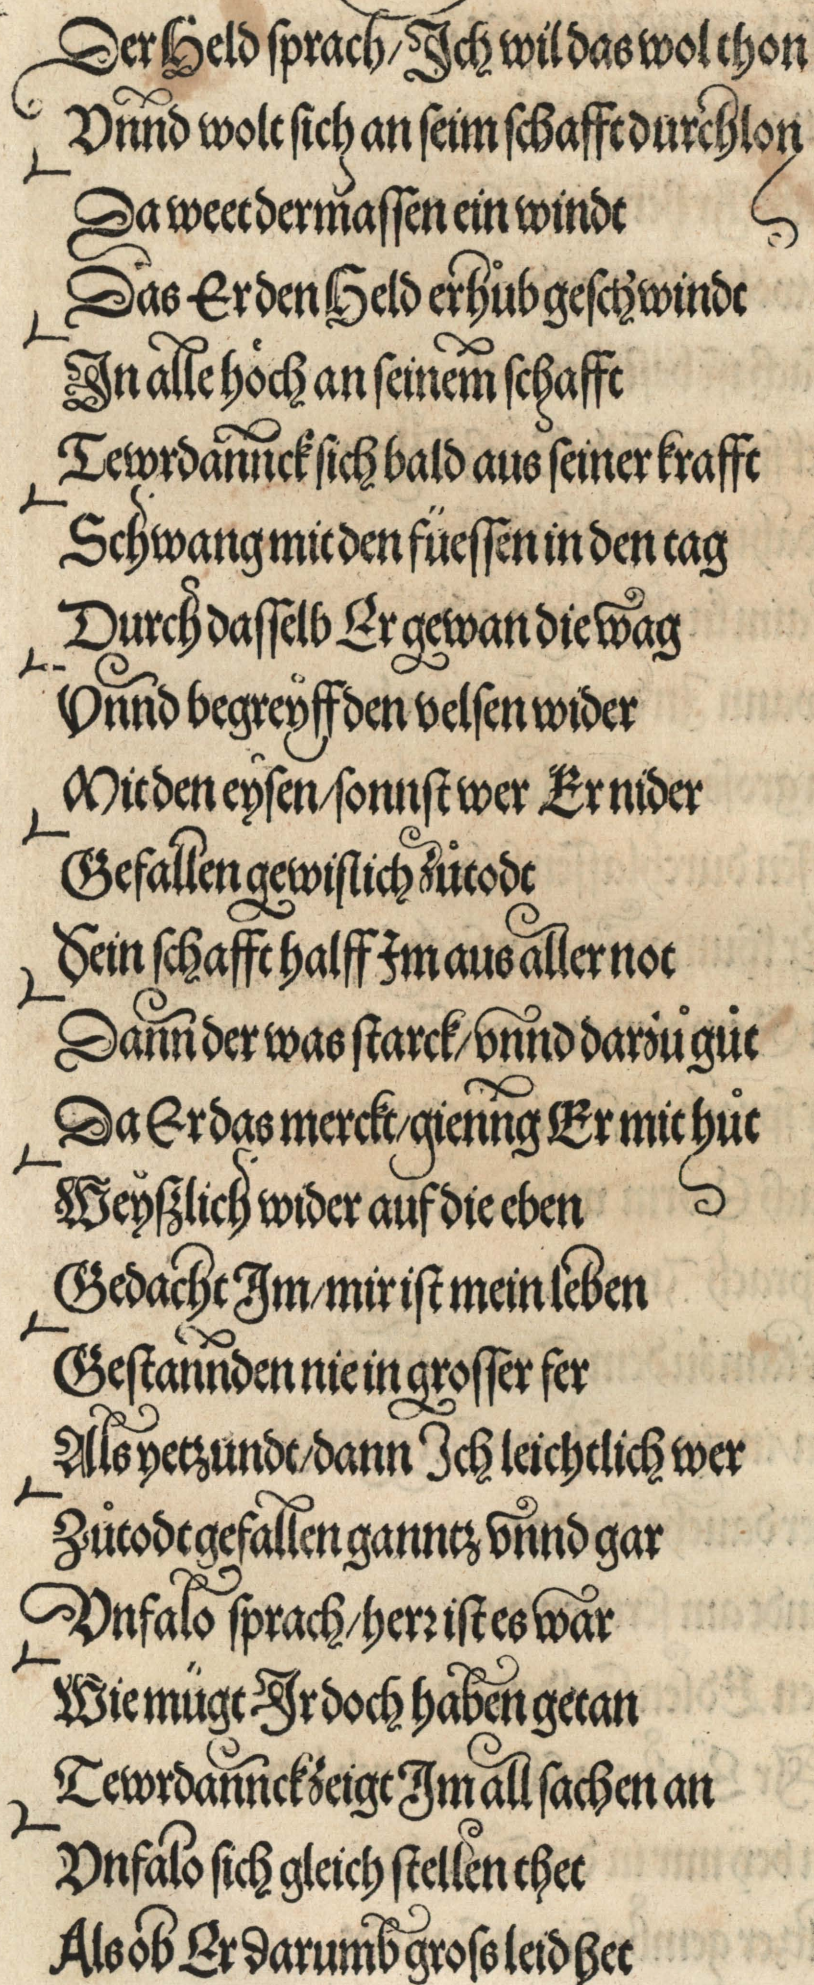 Der Held sprach/ Ich wil das wol thon
Vnnd wolt sich an seim schafft durchlon
Da weet dermassen ein windt
Das Er den Held erhůb geschwindt
In alle höch an seinem schafft
Tewrdannck sich bald aus seiner krafft
Schwang mit den füessen in den tag
Durch dasselb Er gewan die wag
Vnnd begreyff den velsen wider
Mit den eysen/ sonnst wer Er nider
Gefallen gewislich zůtodt
Sein schafft halff Im aus aller not
Dann der was starck/ vnnd darzů gůt
Da Er das merckt/ gienng Er mit hůt
Weyßlich wider auf die eben
Gedacht Im/ mir ist mein leben
Gestannden nie in grosser fer
Als yetzundt/ dann Ich leichtlich wer
Zůtodt gefallen ganntz vnnd gar
Vnfalo sprach/ herr ist es war
Wie mügt Ir doch haben getan
Tewrdannck zeigt Im all sachen an
Vnfalo sich gleich stellen thet
Als ob Er darumb gross leid het